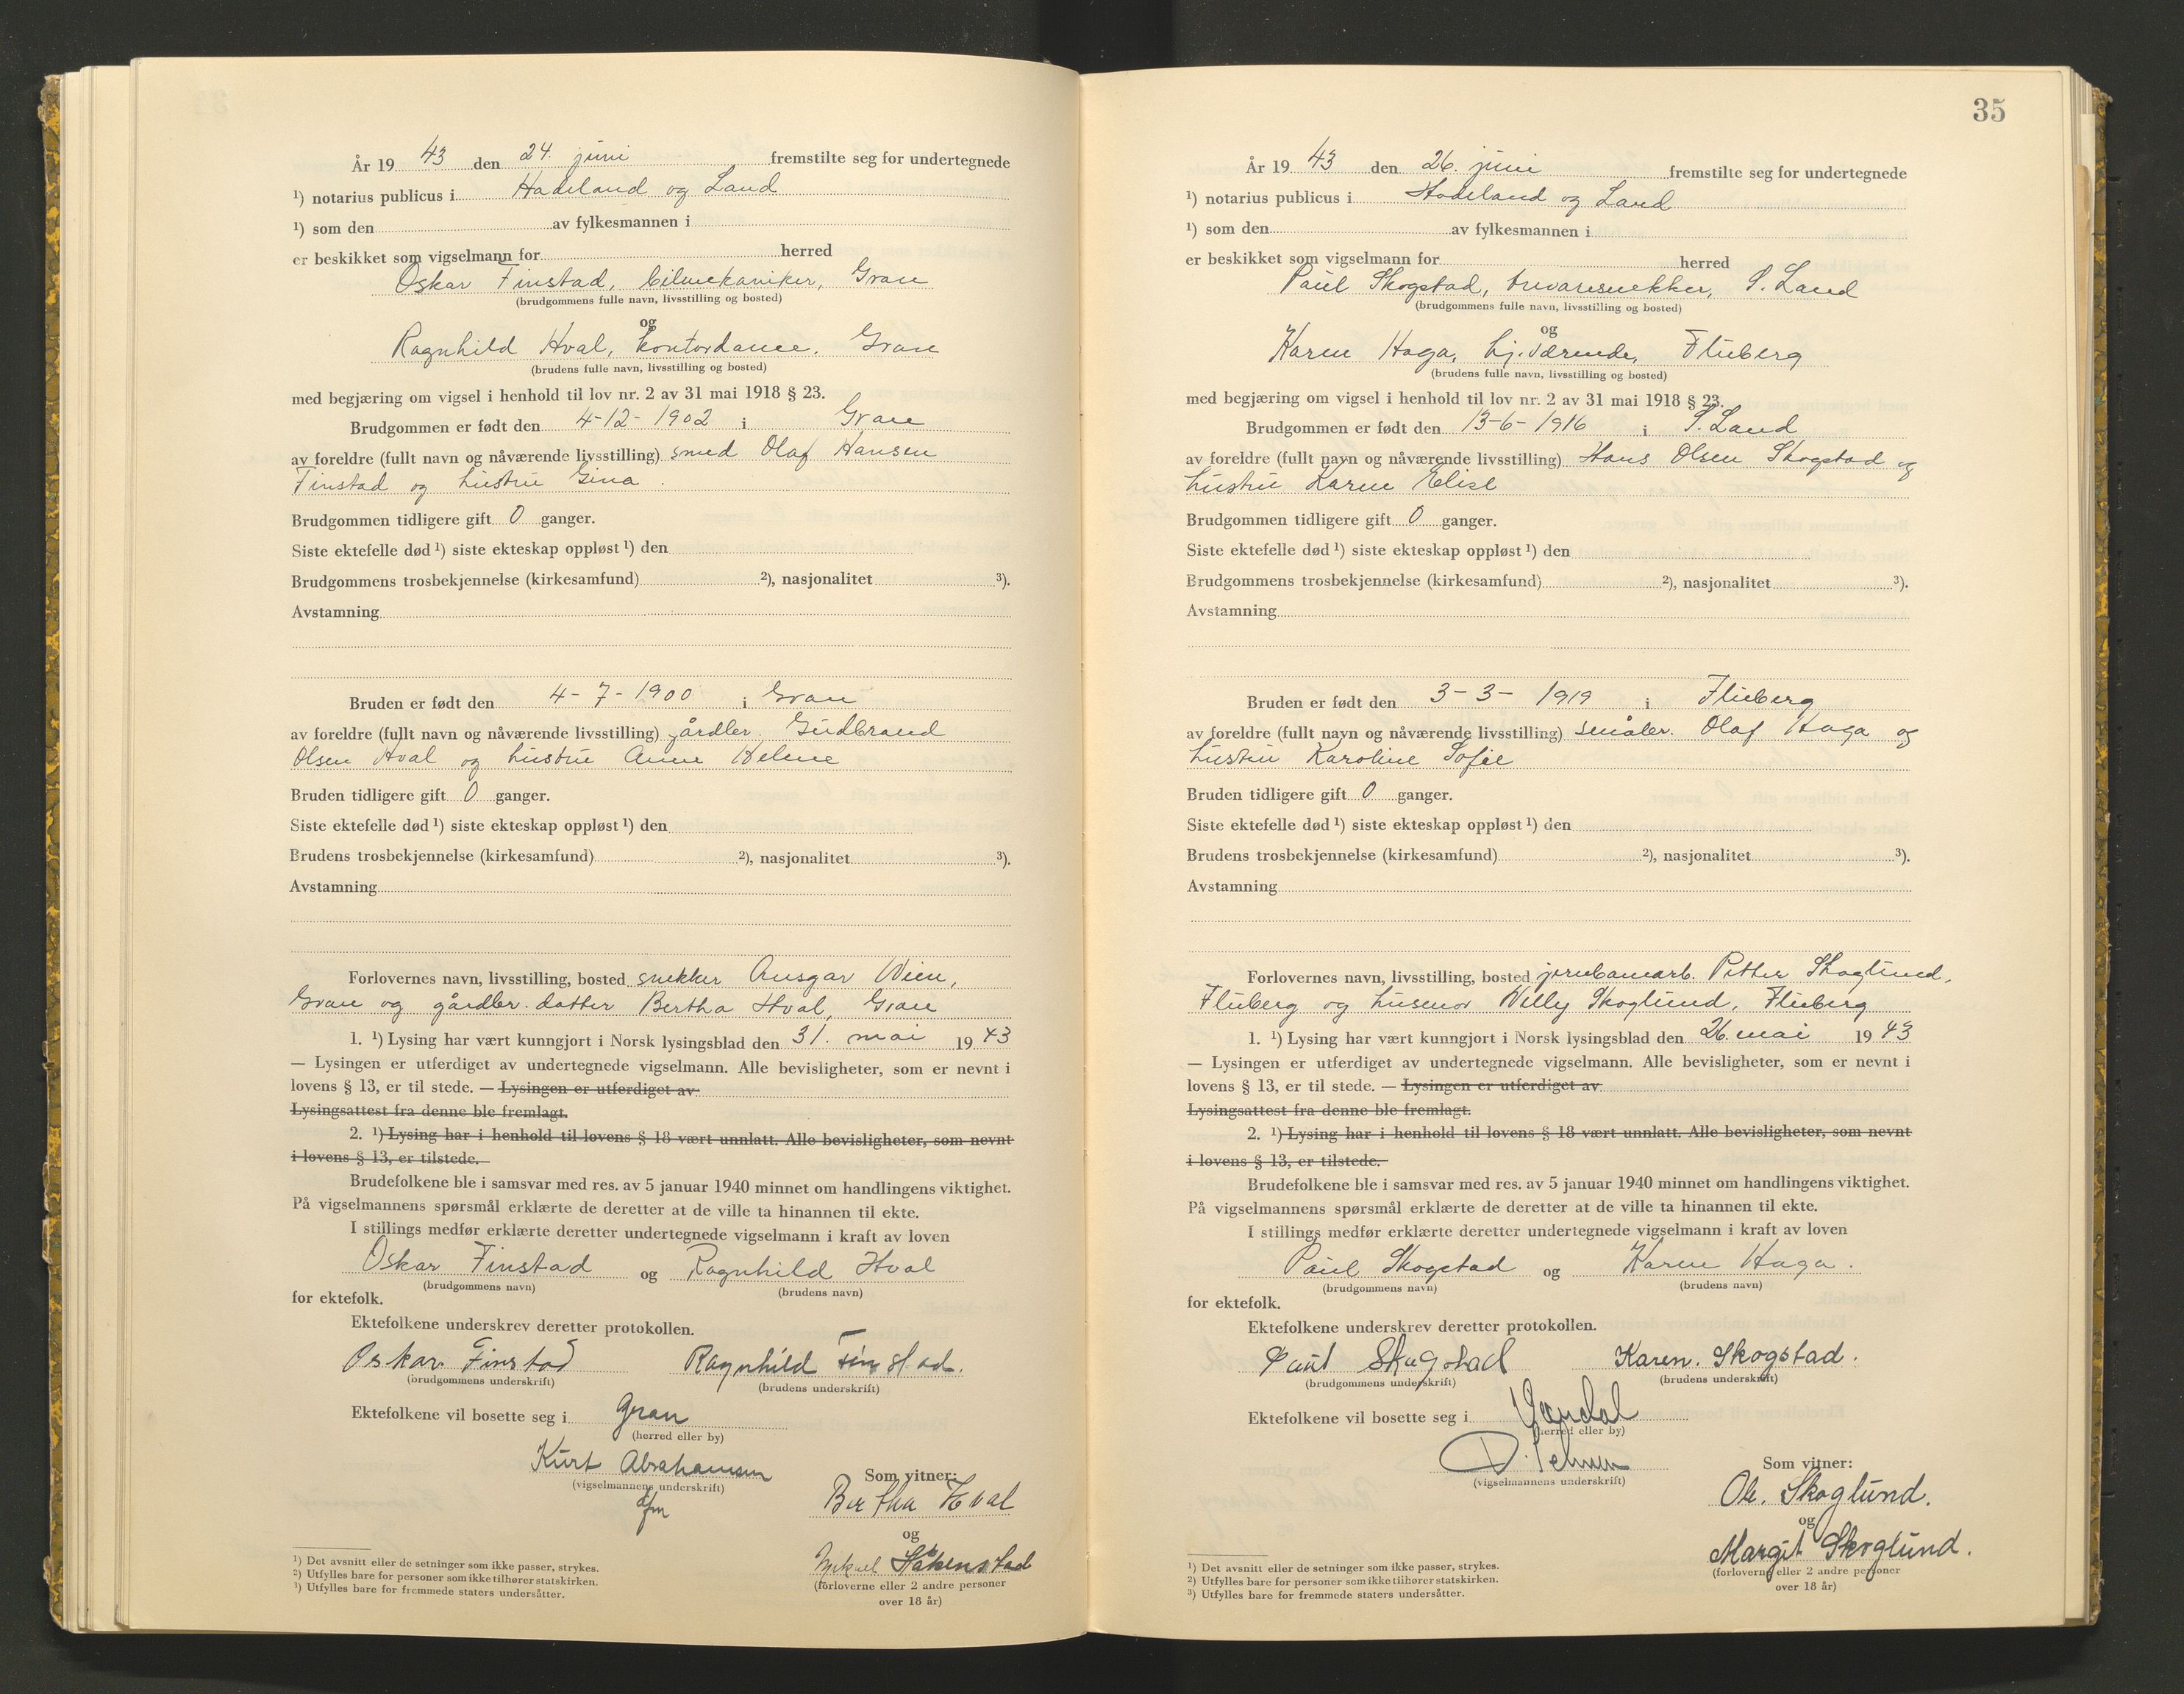 År 19 43 den 24. juni fremstilte seg for undertegnede
¹) notarius publicus i Hadeland og Land
¹) som den av fylkesmannen i
er beskikket som vigselmann for herred
Oskar Finstad, bilmekaniker, Gran
(brudgommens fulle navn, livsstilling og bosted)
og
Ragnhild Hval, kontordame, Gran
(brudens fulle navn, livsstilling og bosted)
med begjæring om vigsel i henhold til lov nr. 2 av 31 mai 1918 § 23.
Brudgommen er født den 4-12-1902 i Gran
av foreldre (fullt navn og nåværende livsstilling) smed Olaf Hansen
Finstad og hustru Gina.
Brudgommen tidligere gift 0 ganger.
Siste ektefelle død ¹) siste ekteskap oppløst ¹) den
Brudgommens trosbekjennelse (kirkesamfund) ²), nasjonalitet ³).
Avstamning
Bruden er født den 4-7-1900 i Gran
av foreldre (fullt navn og nåværende livsstilling) gårdbr. Gudbrand
Olsen Hval og hustru Anne Helene
Bruden tidligere gift 0 ganger.
Siste ektefelle død ¹) siste ekteskap oppløst ¹) den
Brudens trosbekjennelse (kirkesamfund) ²), nasjonalitet ³).
Avstamning
Forlovernes navn, livsstilling, bosted snekker Ansgar Wien,
Gran og gårdbr. datter Bertha Hval, Gran
1. ¹) Lysing har vært kunngjort i Norsk lysingsblad den 31. mai 19 43
— Lysingen er utferdiget av undertegnede vigselmann. Alle bevisligheter, som er nevnt i
lovens § 13, er til stede. — Lysingen er utferdiget av
Lysingsattest fra denne ble fremlagt.
2. ¹) Lysing har i henhold til lovens § 18 vært unnlatt. Alle bevisligheter, som nevnt
i lovens § 13, er tilstede. —
Brudefolkene ble i samsvar med res. av 5 januar 1940 minnet om handlingens viktighet.
På vigselmannens spørsmål erklærte de deretter at de ville ta hinannen til ekte.
I stillings medfør erklærte deretter undertegnede vigselmann i kraft av loven
Oskar Finstad og Ragnhild Hval
(brudgommens navn) (brudens navn)
for ektefolk.
Ektefolkene underskrev deretter protokollen.
Oskar Finstad Ragnhild Finstad.
(brudgommens underskrift) (brudens underskrift)
Ektefolkene vil bosette seg i Gran
(herred eller by)
Kurt Abrahamsen
(vigselmannens underskrift)
dfm
Som vitner:
Bertha Hval
og
Håkenstad
(forloverne eller 2 andre personer
over 18 år)
¹) Det avsnitt eller de setninger som ikke passer, strykes.
²) Utfylles bare for personer som ikke tilhører statskirken.
³) Utfylles bare for fremmede staters undersåtter.
35
År 19 43 den 26. juni fremstilte seg for undertegnede
¹) notarius publicus i Hadeland og Land
¹) som den av fylkesmannen i
er beskikket som vigselmann for herred
Paul Skogstad, trevaresnekker, S. Land
(brudgommens fulle navn, livsstilling og bosted)
og
Karen Haga, hj.værende, Fluberg
(brudens fulle navn, livsstilling og bosted)
med begjæring om vigsel i henhold til lov nr. 2 av 31 mai 1918 § 23.
Brudgommen er født den 13-6-1916 i S. Land
av foreldre (fullt navn og nåværende livsstilling) Hans Olsen Skogstad og
hustru Karen Elise
Brudgommen tidligere gift 0 ganger.
Siste ektefelle død ¹) siste ekteskap oppløst ¹) den
Brudgommens trosbekjennelse (kirkesamfund) ²), nasjonalitet ³).
Avstamning
Bruden er født den 3-3-1919 i Fluberg
av foreldre (fullt navn og nåværende livsstilling) småbr. Olaf Haga og
hustru Karoline Sofie
Bruden tidligere gift 0 ganger.
Siste ektefelle død ¹) siste ekteskap oppløst ¹) den
Brudens trosbekjennelse (kirkesamfund) ²), nasjonalitet ³).
Avstamning
Forlovernes navn, livsstilling, bosted jernbanearb. Petter Skoglund,
Fluberg og husmor Willy Skoglund, Fluberg
1. ¹) Lysing har vært kunngjort i Norsk lysingsblad den 26. mai 19 43
— Lysingen er utferdiget av undertegnede vigselmann. Alle bevisligheter, som er nevnt i
lovens § 13, er til stede. — Lysingen er utferdiget av
Lysingsattest fra denne ble fremlagt.
2. ¹) Lysing har i henhold til lovens § 18 vært unnlatt. Alle bevisligheter, som nevnt
i lovens § 13, er tilstede. —
Brudefolkene ble i samsvar med res. av 5 januar 1940 minnet om handlingens viktighet.
På vigselmannens spørsmål erklærte de deretter at de ville ta hinannen til ekte.
I stillings medfør erklærte deretter undertegnede vigselmann i kraft av loven
Paul Skogstad og Karen Haga.
(brudgommens navn) (brudens navn)
for ektefolk.
Ektefolkene underskrev deretter protokollen.
Paul Skogstad Karen. Skogstad.
(brudgommens underskrift) (brudens underskrift)
Ektefolkene vil bosette seg i
(herred eller by)
(vigselmannens underskrift)
Som vitner:
Ole. Skoglund.
og
Margit Skoglund.
(forloverne eller 2 andre personer
over 18 år)
¹) Det avsnitt eller de setninger som ikke passer, strykes.
²) Utfylles bare for personer som ikke tilhører statskirken.
³) Utfylles bare for fremmede staters undersåtter.